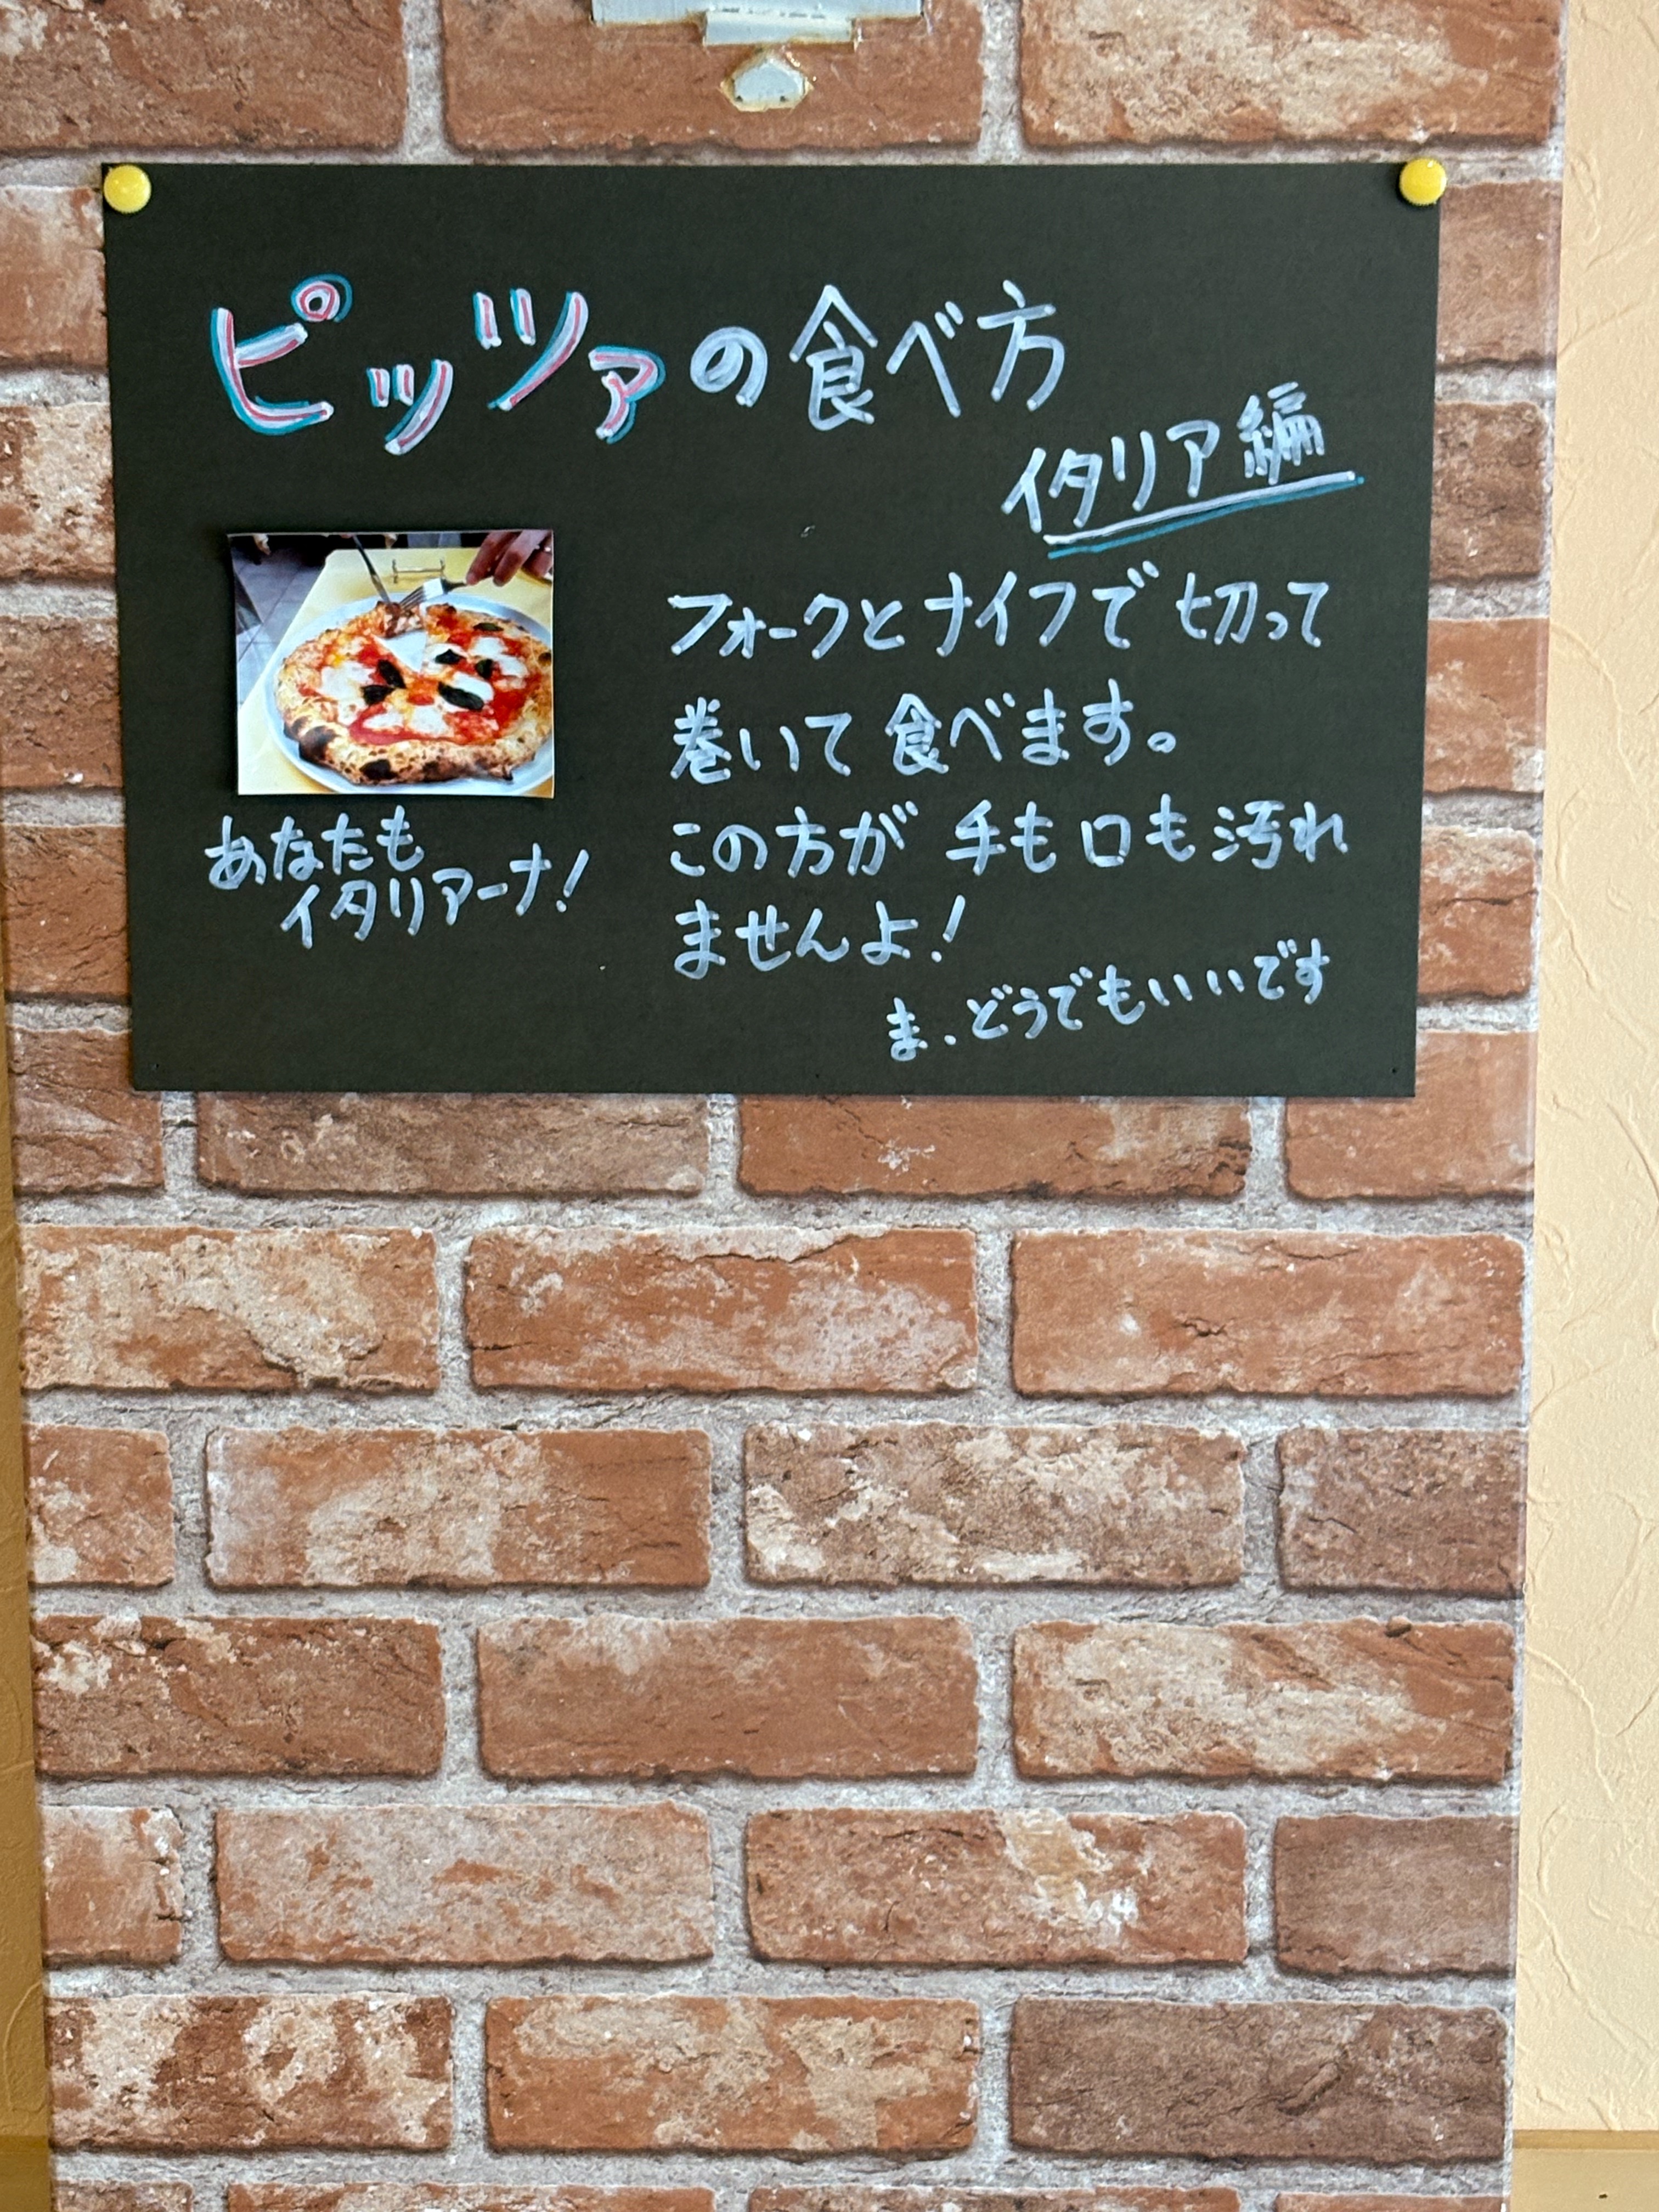 ピッツァの食べ方
イタリア編
フォークとナイフで切って
巻いて食べます。
この方が手も口も汚れ
ませんよ!
ま、どうでもいいです
あなたも
イタリアーナ!